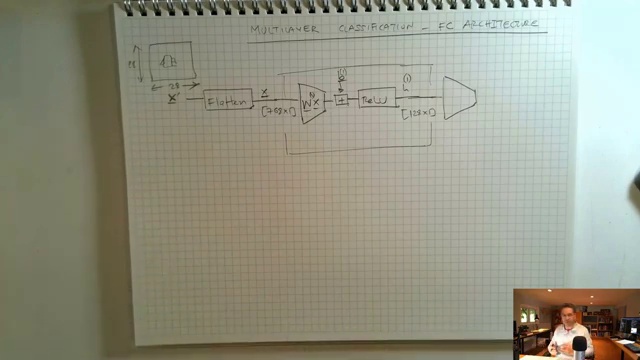 MULTILAYER CLASSIFICATION - FC ARCHITECTURE
28
28
X'
Flatten
x
[768x1]
W(1) x
b(1)
+
ReLU
h(1)
[128x1]